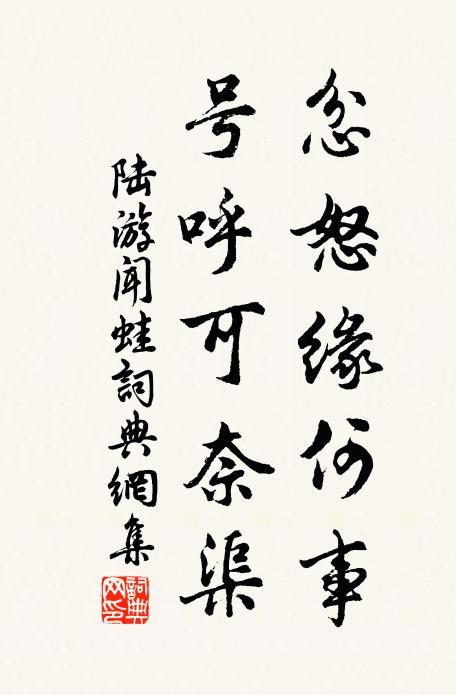 忿怒缘何事
号呼可奈渠
陆游闻蛙詞典網集
詞典网印